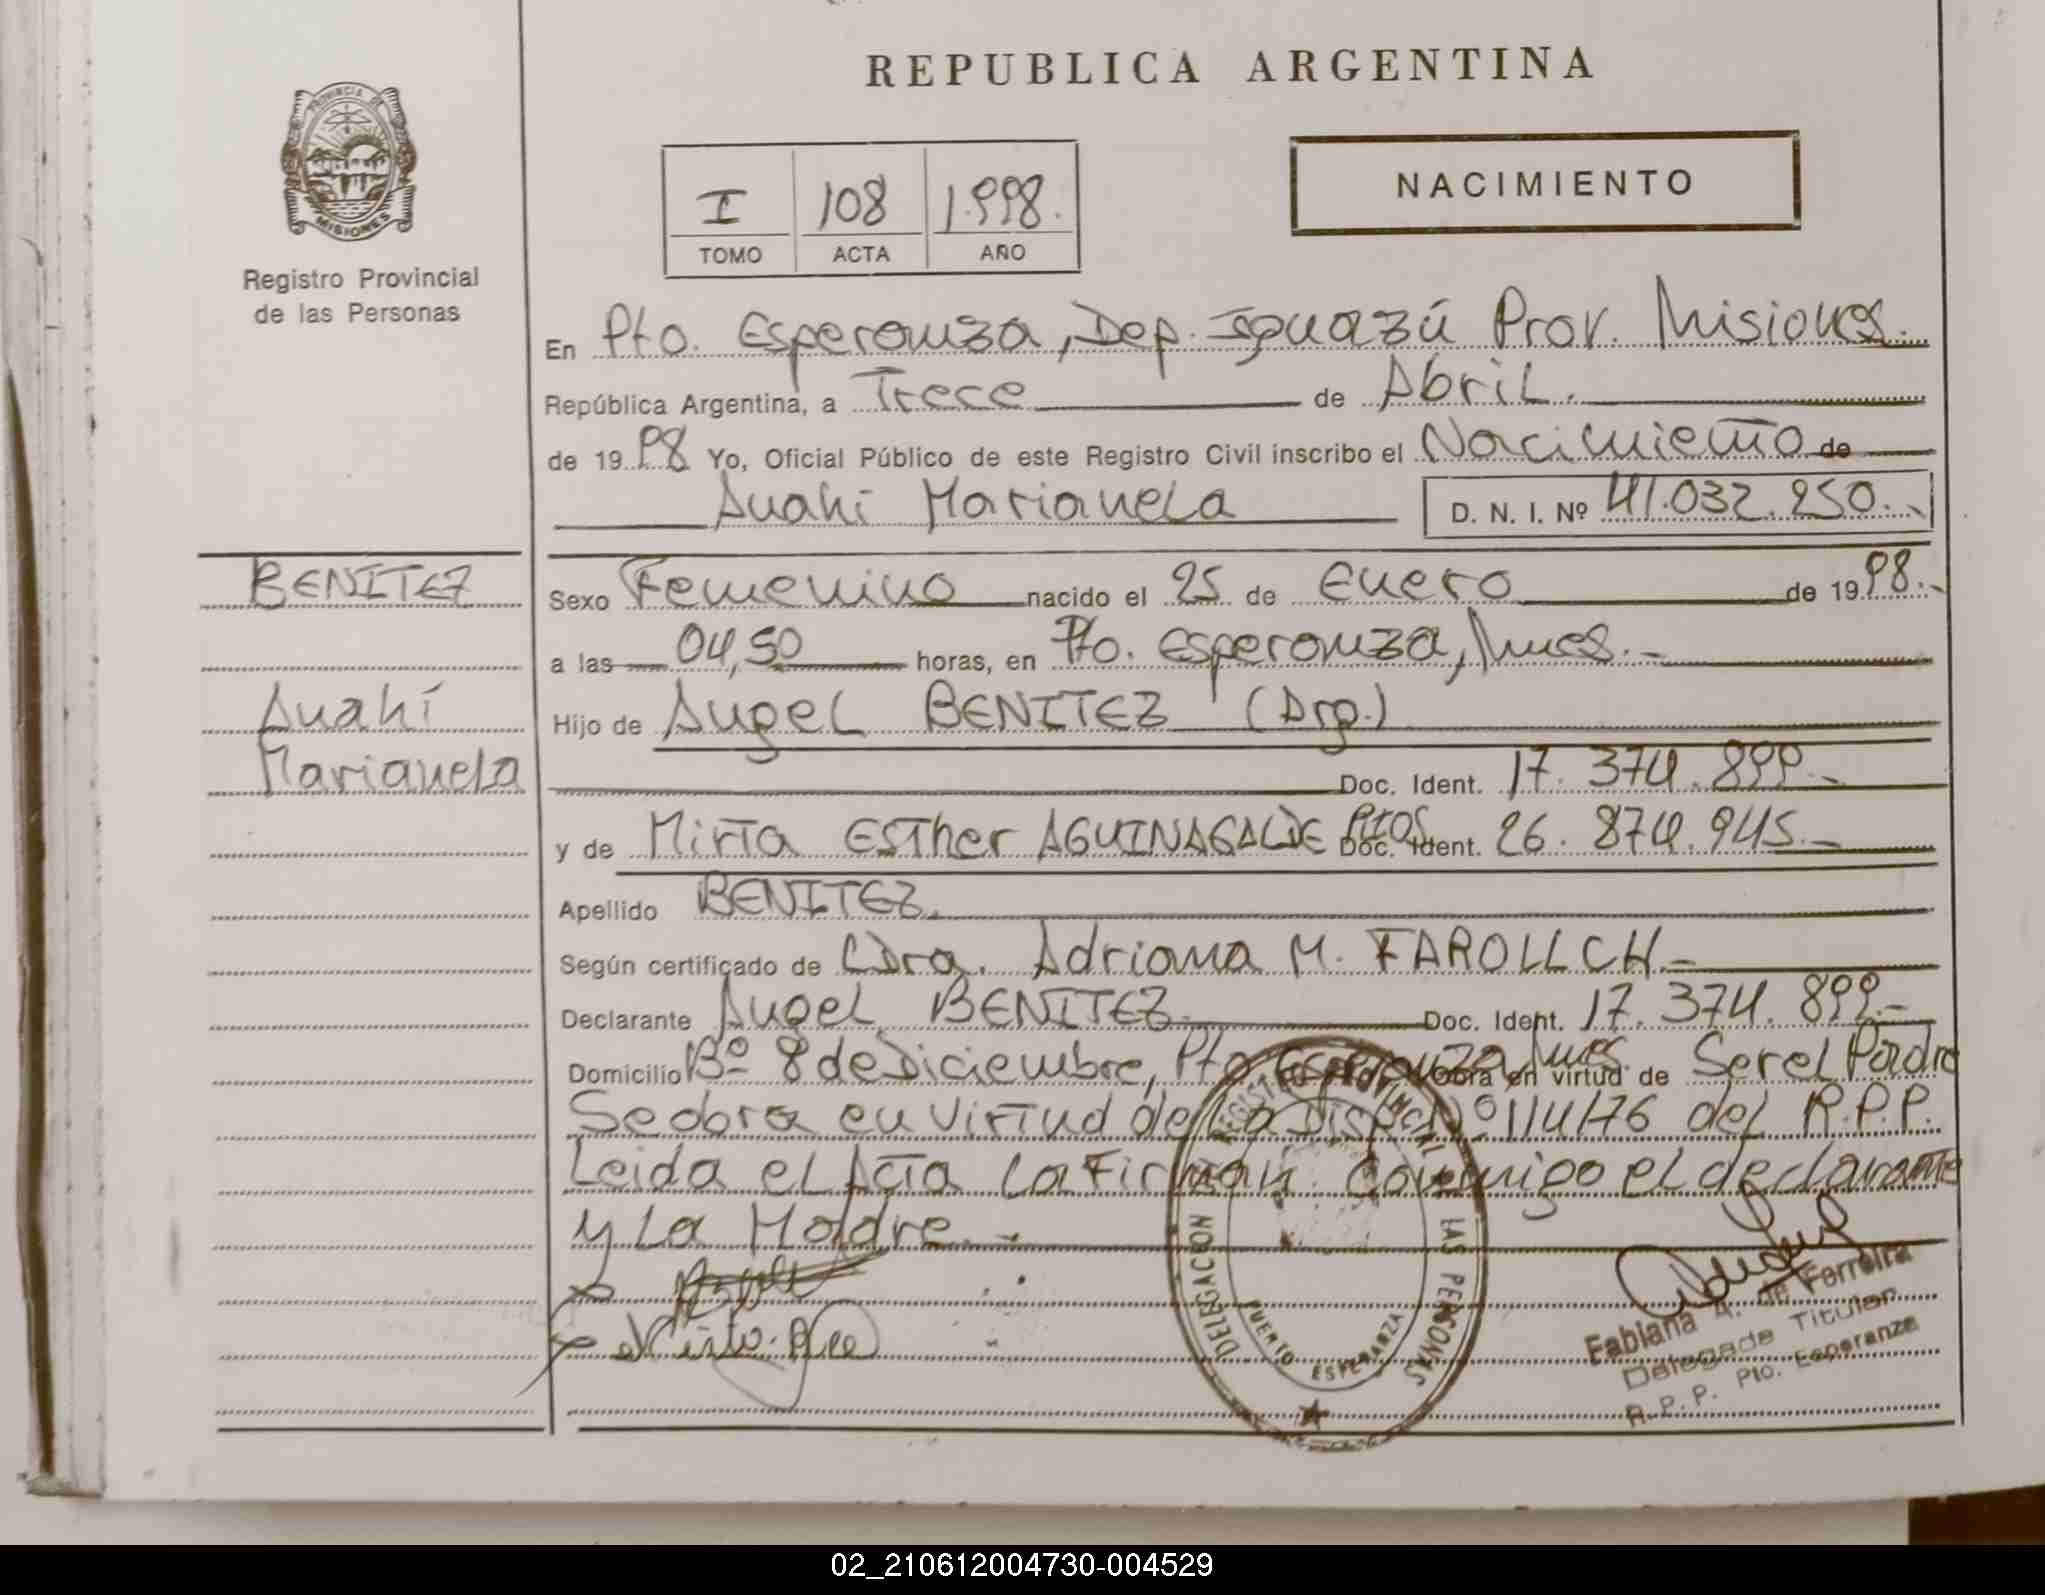 REPUBLICA ARGENTINA
PROVINCIA DE
MISIONES
Registro Provincial
de las Personas
I 108 1.998.
TOMO ACTA AÑO
NACIMIENTO
En Pto. Esperanza, Dep. Iguazú Prov. Misiones.
República Argentina, a Trece de Abril.
de 1998 Yo, Oficial Público de este Registro Civil inscribo el Nacimiento de
Anahí Marianela D. N. I. Nº 41.032.250.-
BENITEZ
Anahí
Marianela
Sexo Femenino nacido el 25 de Enero de 1998.-
a las 04,50 horas, en Pto. Esperanza, Mnes.-
Hijo de Angel BENITEZ (Arg.)
Doc. Ident. 17.374.899.-
y de Mirta Esther AGUINAGALDE Doc. Ident. 26.874.945.-
Apellido BENITEZ.
Según certificado de Dra. Adriana M. FAROLLCH.-
Declarante Angel BENITEZ. Doc. Ident. 17.374.899.-
Domicilio Bº 8 de Diciembre, Pto Esperanza, Mnes. Obra en virtud de Ser el Padre
Se obra en Virtud de La Disp. Nº 114/76 del R.P.P.
Leida el Acta La Firman Conmigo el declarante
y La Madre.-
REGISTRO PROVINCIAL DE LAS PERSONAS
DELEGACION
PUERTO ESPERANZA
Fabiana A. de Ferreira
Delegada Titular
R.P.P. Pto. Esperanza
02_210612004730-004529